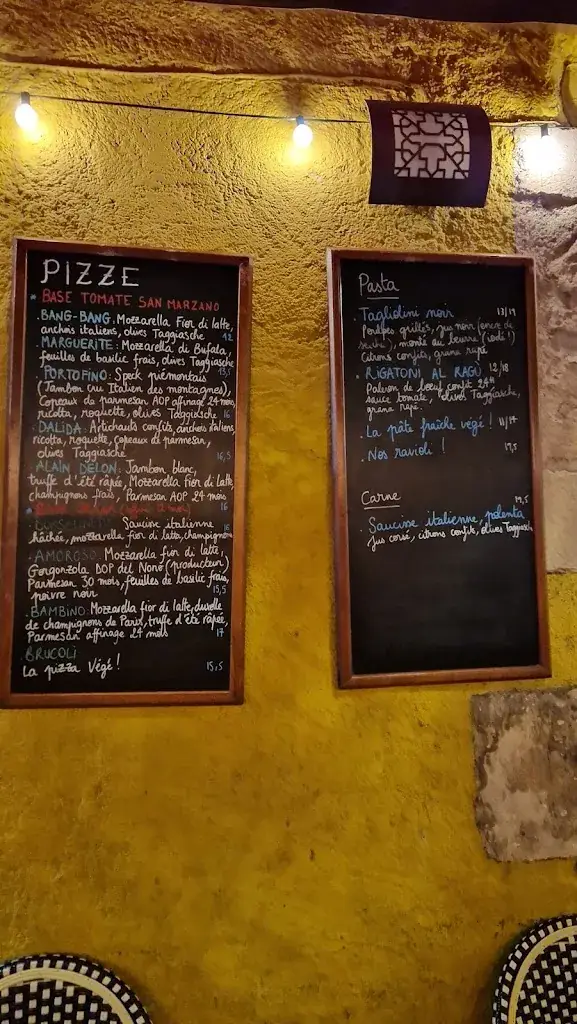 PIZZE
BASE TOMATE SAN MARZANO
BANG-BANG: Mozzarella Fior di latte,
anchois italiens, olives Taggiasche 12
MARGUERITE: Mozzarella di Bufala,
feuilles de basilic frais, olives Taggiasche
PORTOFINO: Speck piémontais 13,5
(Jambon cru Italien des montagnes),
Copeaux de parmesan AOP affinage 24 mois,
ricotta, roquette, olives Taggiasche 16
DALIDA: Artichauts confits, anchois italiens,
ricotta, roquette, copeaux di parmesan,
olives Taggiasche 16,5
ALAIN DELON: Jambon blanc,
truffe d'été râpée, Mozzarella Fior di latte,
champignons frais, Parmesan AOP 24 mois
16
Saucisse italienne 16
hâchée, mozzarella, fior di latte, champignons
AMOROSO: Mozzarella fior di latte,
Gorgonzola DOP del Nonno (producteur)
Parmesan 30 mois, feuilles de basilic frais,
poivre noir 15,5
BAMBINO: Mozzarella fior di latte, duxelle
de champignons de Paris, truffe d'été râpée,
Parmesan affinage 24 mois 17
BRUCOLI
La pizza Végé! 15,5
Pasta
Tagliolini noir 13/19
Poulpes grillés, jus noir (encre de
seiche), monté au beurre (iodé!)
Citrons confits, grana rapé
RIGATONI AL RAGÙ 12/18
Paleron de boeuf confit 24H
sauce tomate, olives Taggiasche,
grana rapé.
La pâte fraîche végé! 11/17
Nos ravioli! 17,5
Carne
19,5
Saucisse italienne, polenta
Jus corsé, citrons confits, olives Taggiasche